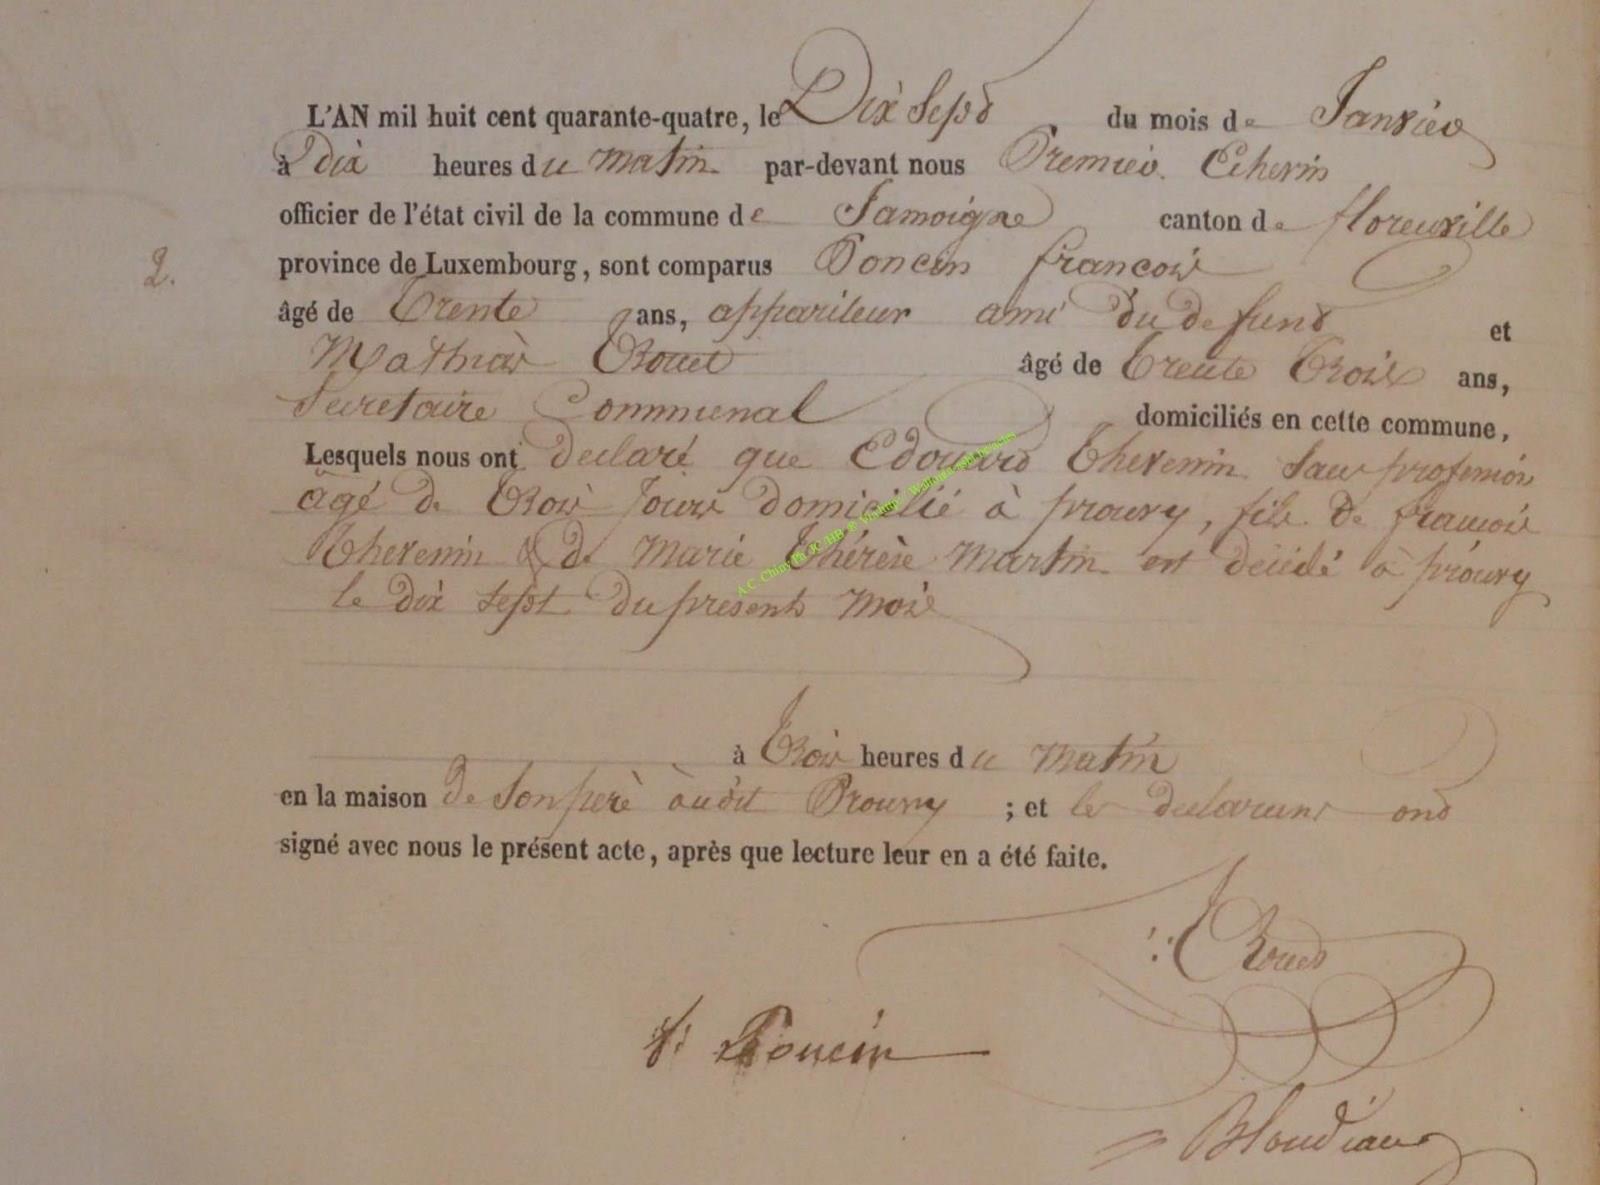 L'AN mil huit cent quarante-quatre, le Dix Sept du mois de Janvier
à dix heures du matin par-devant nous Premier Echevin
officier de l'état civil de la commune de Jamoigne canton de florenville
2. province de Luxembourg, sont comparus Poncin francois
âgé de trente ans, appariteur ami du defunt et
Mathias Trouet âgé de trente trois ans,
Secretaire Communal domiciliés en cette commune,
Lesquels nous ont declaré que Edouard thevenin Sans profession
âgé de trois jours domicilié à prouvy, fils de francois
thevenin & de Marie thérèse Martin est décédé à prouvy
le dix sept du present mois
à trois heures du matin
en la maison de son père àudit Prouvy ; et les declarans ont
signé avec nous le présent acte, après que lecture leur en a été faite.
Trouet
f. Poncin
Blondiau